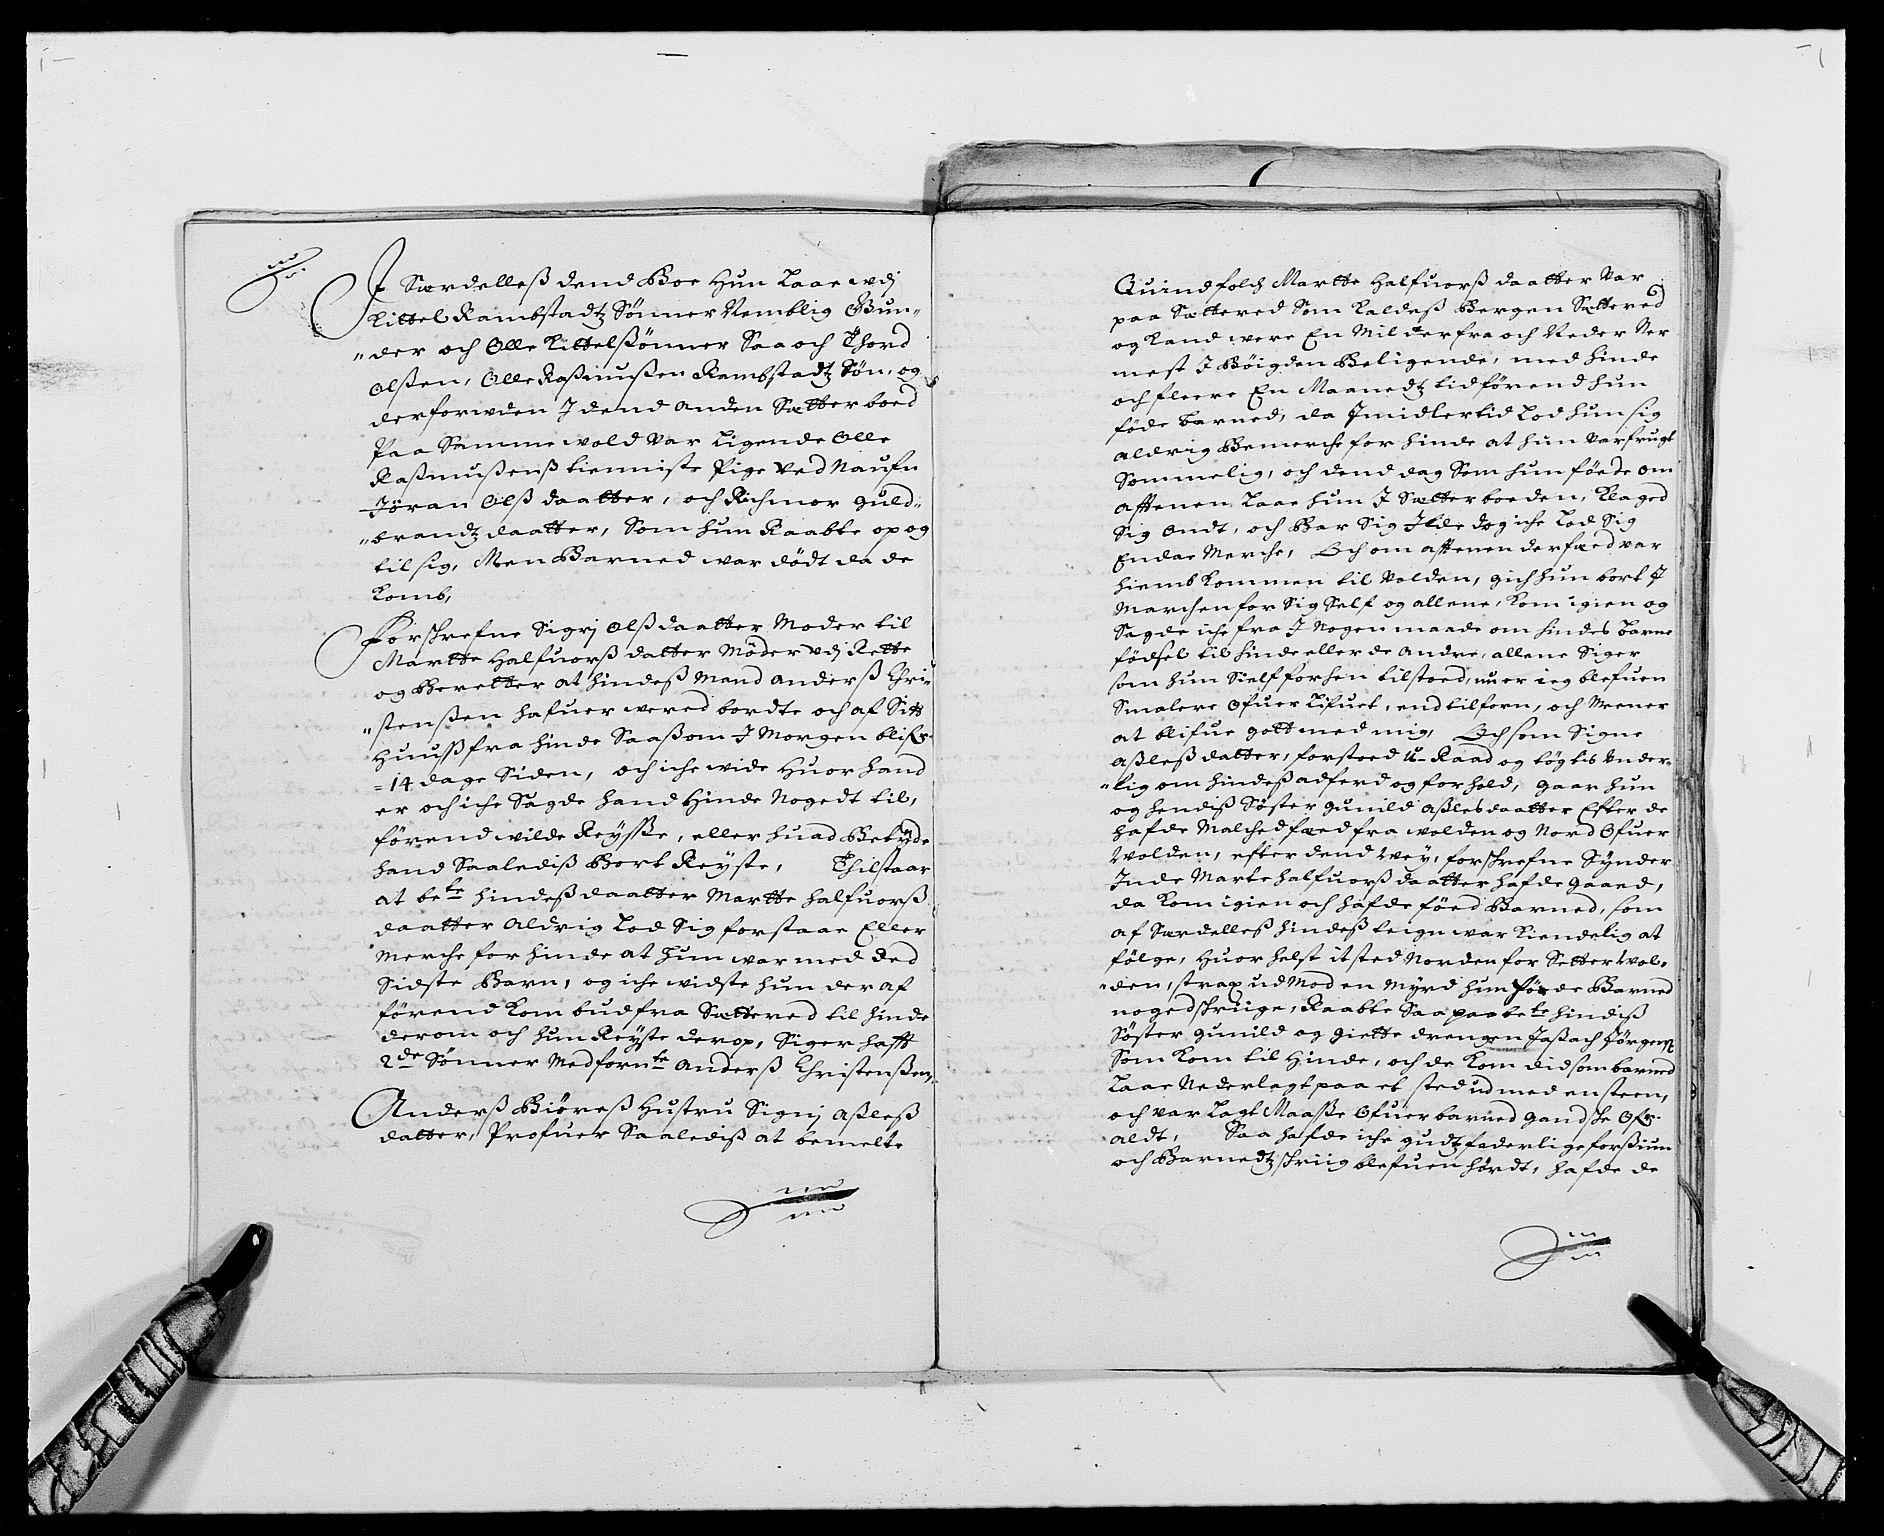 I Særdelleß dend Boe Hun Laae udj
Kittel Rambstadtz Sønner Nemblig Gun„
„der och Olle Kittelßønner Saa och Thord
Olßen, Olle Raßmußen Rambstadtz Søn, og
derforuden J dend anden Sætterboed
Paa Samme wold Var Ligende Olle
Raßmußenß tienniste Pige Ved Naufn
Jøran Olß daatter, och Richmor Guld„
„brandtz daatter, Som hun Raabte op og
til sig, Men Barned war dødt da de
Komb,
Forskrefne Sigrj Olß daatter Moder til
Martte Halfuorß datter Møder Udj Rette
og Beretter at hindeß Mand Anderß Chri„
„stenßen hafuer wered bordte och af Sitt
Huuß fra hinde Saaßom J Morgen blifr.
= 14 dage Siden, och iche wide Huor hand
er och iche Sagde hand Hinde Nogedt til,
førend wilde Reyße, eller huad Betyde
hand Saalediß Bort Reyste, Thilstaar
at bete hindeß daatter Martte halfuorß
daatter Aldrig Lod Sig forstaae Eller
Merche for hinde at hun war med ded
Sidste Barn, og iche widste hun der af
førend Kom bud fra Sættered til hinde
derom och hun Reyste derop, Siger hafft
2de Sønner Med fornte Anderß Christenßen,
Anderß Biøreß Hustru Signj Aßleß
datter, Profuer Saalediß at bemelte
Quindfolch Martte Halfuorß daatter Var
paa Sættered Som Kaldeß Bergen Sættered
og Kand were En Mil derfra och Neder Ner
mest J Bøigden Beligende, med hinde
och fleere En Maanedtz tid førend hun
føde barned, da Jmidlertid Lod hun sig
aldrig Bemerche for hinde at hun Var frugt
Sommelig, och dend dag Som hun føede om
afftenen Laae hun J Sætterboeden, Klaged
Sig Ondt, och Bar Sig Ilde dog iche Lod Sig
Endae Merche, Och om afftenen der fæed var
hiemb Kommen til Volden, gich hun bort J
Marchen for Sig Self og allene, Kom igien og
Sagde iche fra J Nogen maade om hindes barne
fødsel til hinde eller de andre, allene Siger
som hun Sielf forhen tilstoed, nu er ieg blefuen
Smalere Ofuer Lifuet, end tilforn, och Mener
at blifue gott med mig, Och som Signe
Aßleß datter, forstoed U-Raad og tøgtis Under„
„lig om hindeß adferd og forhold, gaar hun
og hendiß Søster Gunild Aßles daatter Efter de
hafde Malched fæed fra wolden og Nord Ofuer
Volden, efter dend Wey, forskrefne Synder
Inde Marte halfuorß daatter hafde gaaed,
da Kom igien och hafde føed Barned, som
af Særdelleß hindeß teign war Kiendelig at
følge, Huor helst it sted Norden for Setter wol„
„den, strax ud Mod en Myrd hun førde Barned
noged skrige, Raabte Saa paa bete hindiß
Søster Gunild og giette drengen Jaßach Jørgenß
Som Kom til Hinde, och de Kom did som barned
Laae Nederlagt paa et sted ud med en steen,
och var Lagt Maaße Ofuer barned gandske Ofr.
aldt, Saa hafde iche gudtz faderlige forßiun
och Barnedtz skriig blefuen hørdt, hafde de